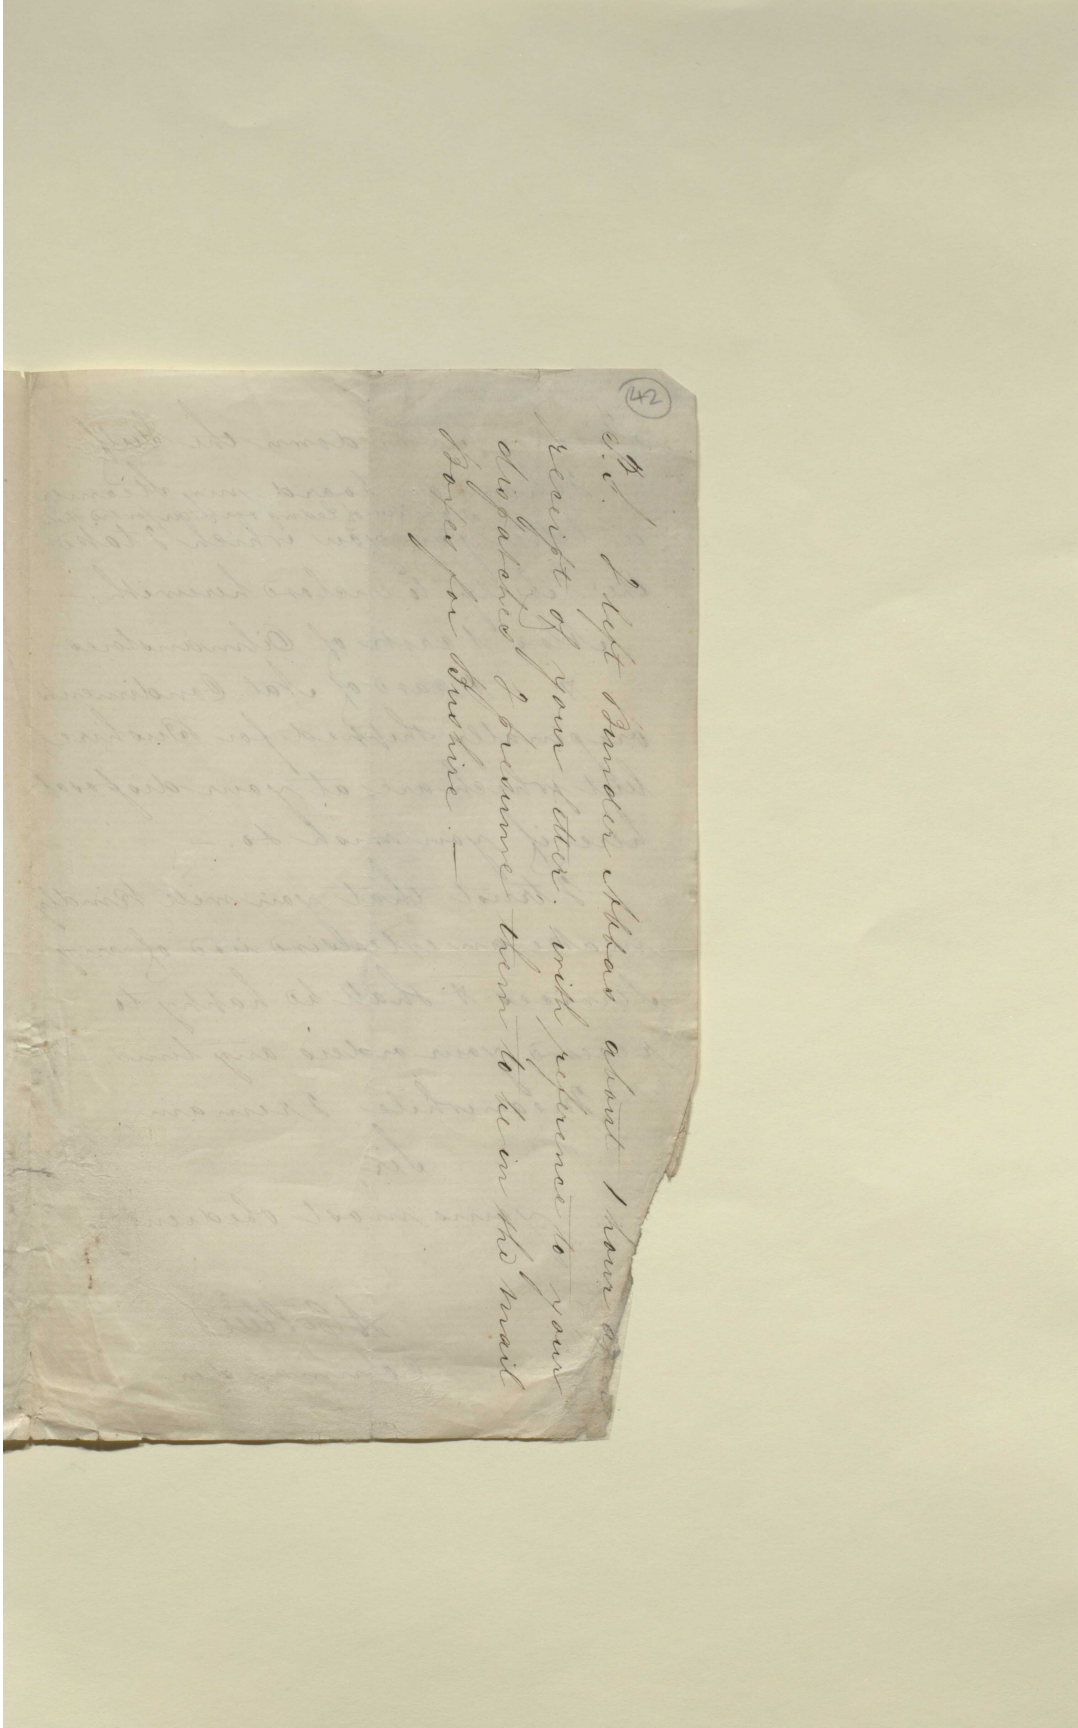 42
P.S. I left Bunder Abbas about 1 hour
receipt of your letter. with reference to your
dispatches I presume them to be in the mail
Boxes for Bushire. —